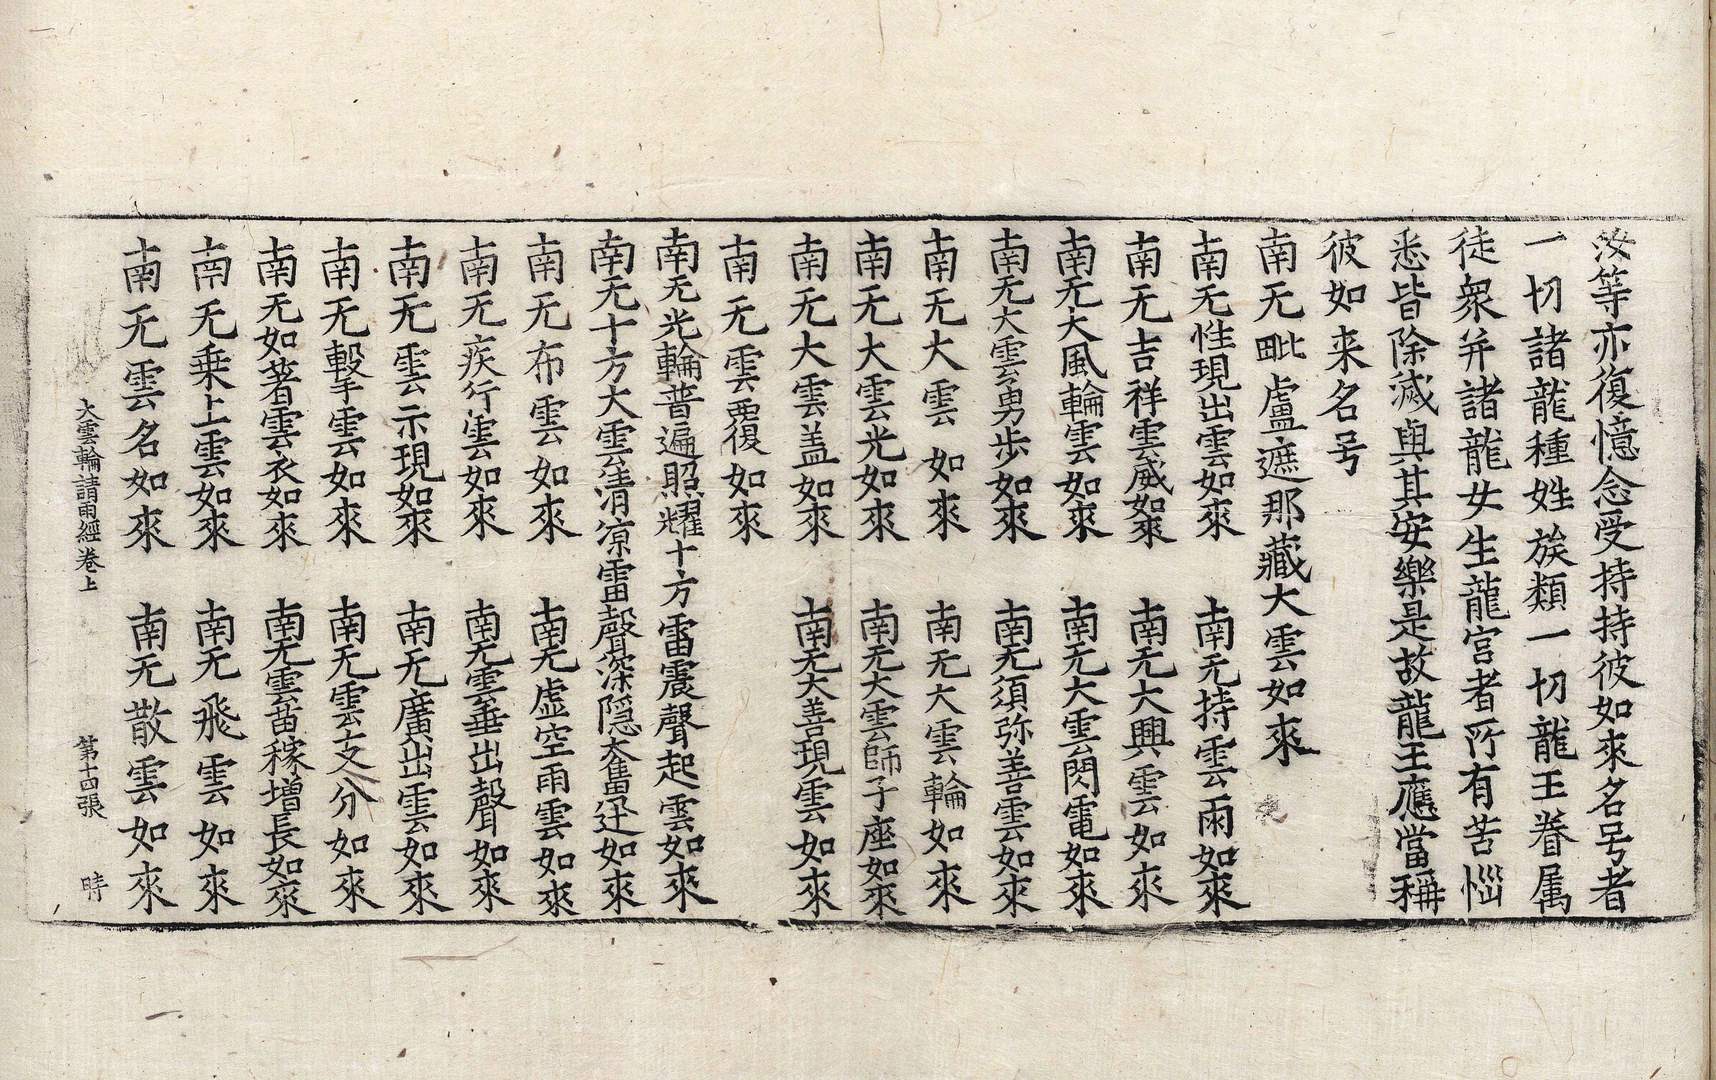 汝等亦復憶念受持持彼如來名号者
一切諸龍種姓族類一切龍王眷属
徒衆并諸龍女生龍宫者所有苦惱
悉皆除滅與其安樂是故龍王應當稱
彼如来名号
南无毗盧遮那藏大雲如來
南无性現出雲如來 南无持雲雨如來
南无吉祥雲威如來 南无大興雲如來
南无大風輪雲如來 南无大雲閃電如來
南无大雲勇步如來 南无須弥善雲如來
南无大雲如來 南无大雲輪如來
南无大雲光如來 南无大雲師子座如來
南无大雲盖如來 南无大善現雲如來
南无雲覆如來
南无光輪普遍照耀十方雷震聲起雲如來
南无十方大雲清凉雷聲深隠大奮迅如來
南无布雲如來 南无虚空雨雲如來
南无疾行雲如來 南无雲垂出聲如來
南无雲示現如來 南无廣出雲如來
南无擊雲如來 南无雲支分如來
南无如著雲衣如來 南无雲苗稼增長如來
南无乗上雲如來 南无飛雲如來
南无雲名如來 南无散雲如來
大雲輪請雨經卷上 第十四張 時